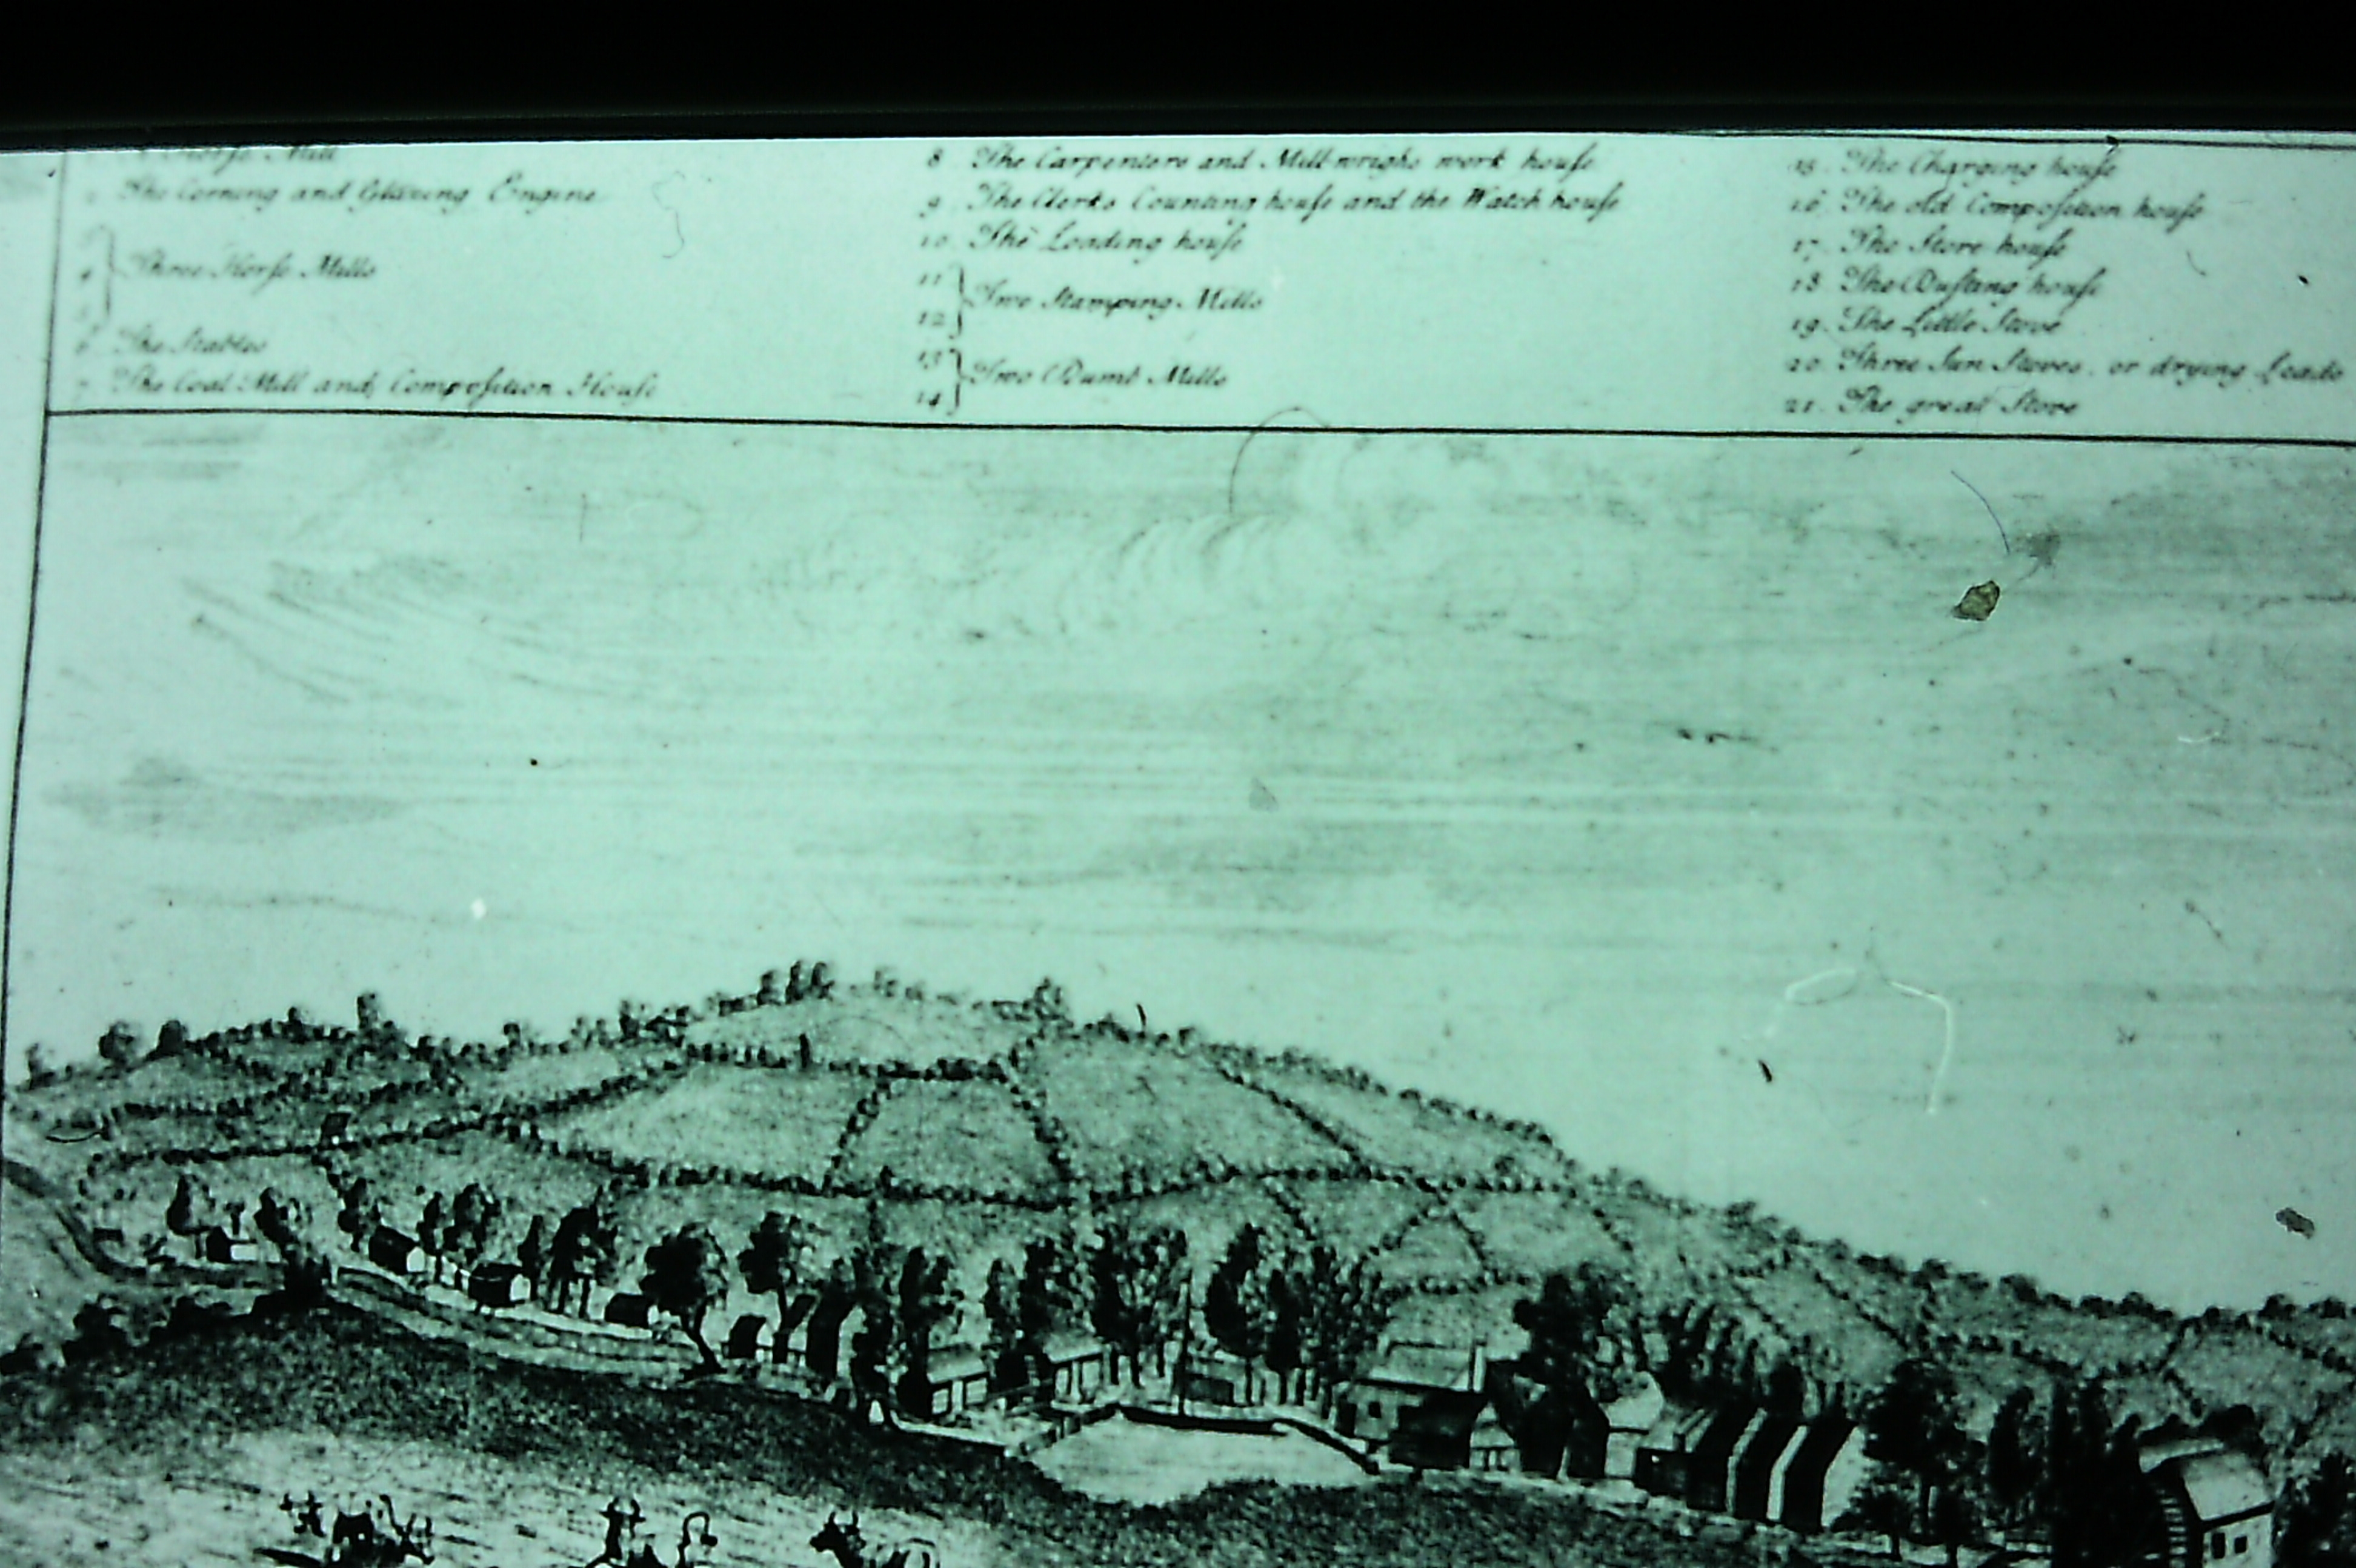 Horſe Mill
2 The Corning and Glazing Engine
4 Three Horſe Mills
6 The Stables
7 The Coal Mill and Compoſition Houſe
8 The Carpenters and Mill-wrighs work houſe
9 The Clerks Counting houſe and the Watch houſe
10 The Loading houſe
11
12 Two Stamping Mills
13
14 Two Dumb Mills
15. The Charging houſe
16 The old Compoſition houſe
17. The Store houſe
18 The Duſting houſe
19. The Little Stove
20. Three Sun Stoves, or drying Leads
21. The great Stove